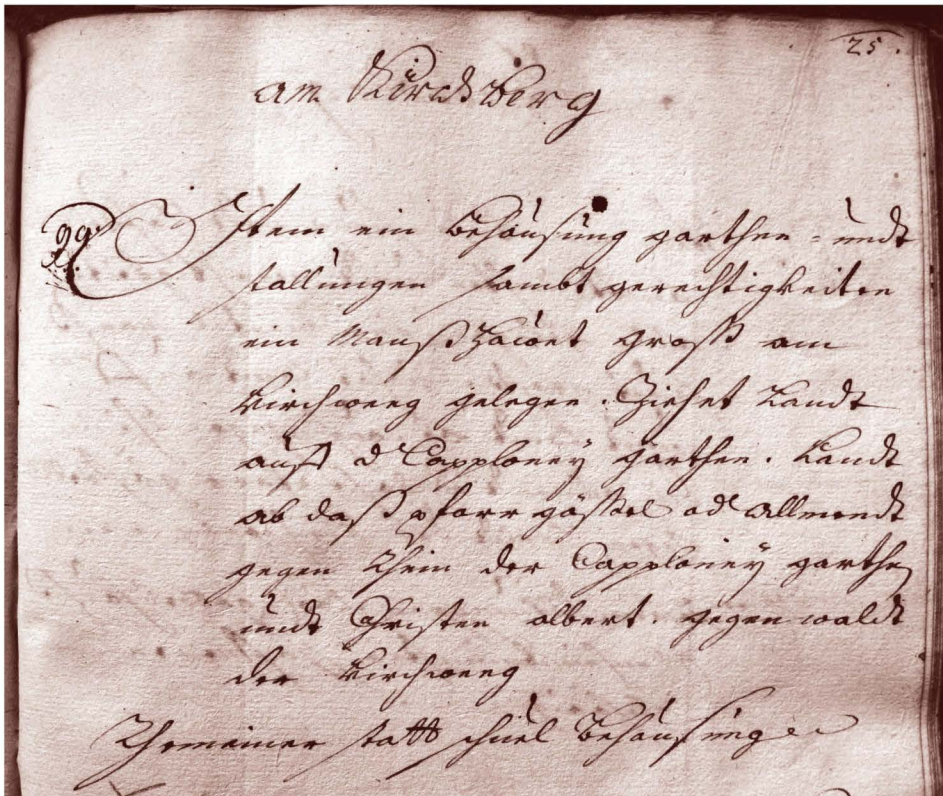 25.
am Kirchberg
99
Item ein behausung garthen = undt
stallungen sambt gerechtigkeiten
ein Manß hauet groß am
Kirchweeg gelegen. Ziehet Landt
auff d Capploney garthen. Landt
ab daß pfarr gässel od allmendt
gegen Rhein der Capploney garthen
undt Christen albert. gegen waldt
der Kirchweeg
Gemeiner statt schuel behausung